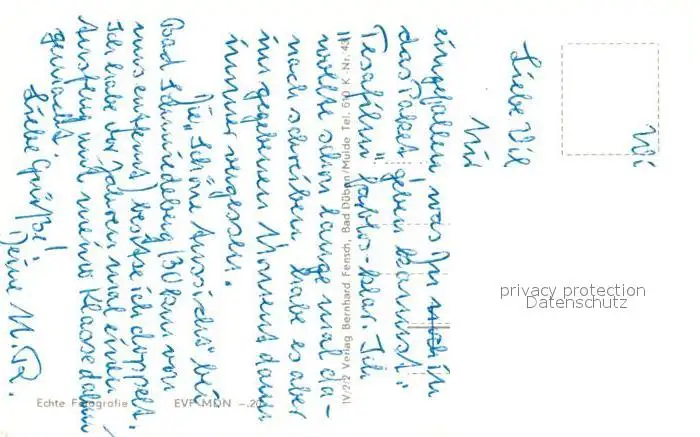 Liebe
Mir
eingefallen was Du noch in
das Paket geben kannst:
"Tesafilm" farblos-klar. Ich
wollte schon lange mal da-
nach schreiben, habe es aber
im gegebenen Moment dann
immer vergessen.
Die "Schöne Aussicht" bei
Bad Schmiedeberg (30 km von
uns entfernt) besitze ich doppelt.
Ich habe vor Jahren mal einen
Ausflug mit meiner Klasse dahin
gemacht.
Liebe Grüße!
Deine M. R.
IV/2/2 Verlag Bernhard Fensch, Bad Düben/Mulde Tel. 610 K Nr. 431
Echte Fotografie EVP MDN -.20
privacy protection
Datenschutz